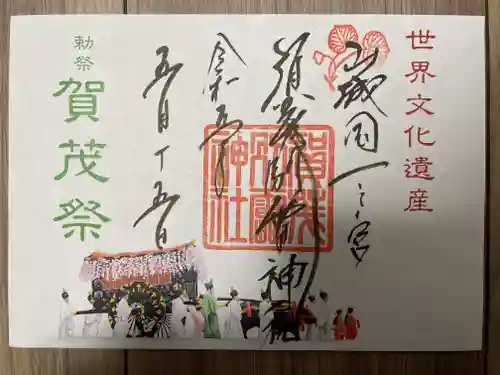 世界文化遺産
山城国一之宮
賀茂別雷神社
賀茂
別雷
神社
令和五年
五月十五日
勅祭
賀茂祭